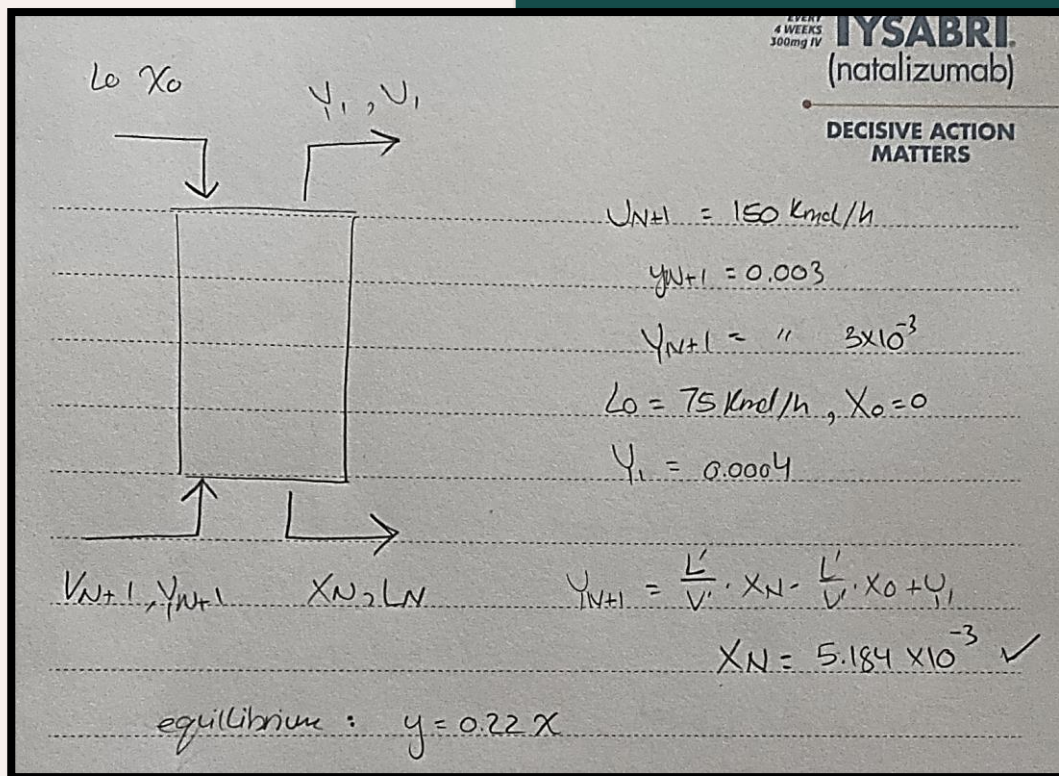 EVERY
4 WEEKS
300mg IV
TYSABRI®
(natalizumab)
DECISIVE ACTION
MATTERS
Lo Xo
Y₁, V₁
V_N+1 = 150 Kmol/h
y_N+1 = 0.003
Y_N+1 = " 3x10⁻³
Lo = 75 Kmol/h, Xo=0
Y₁ = 0.0004
V_N+1, Y_N+1
X_N, L_N
Y_N+1 = L'/V' · X_N - L'/V' · Xo + Y₁
X_N = 5.184 x10⁻³ ✓
equillibrium : y = 0.22 x